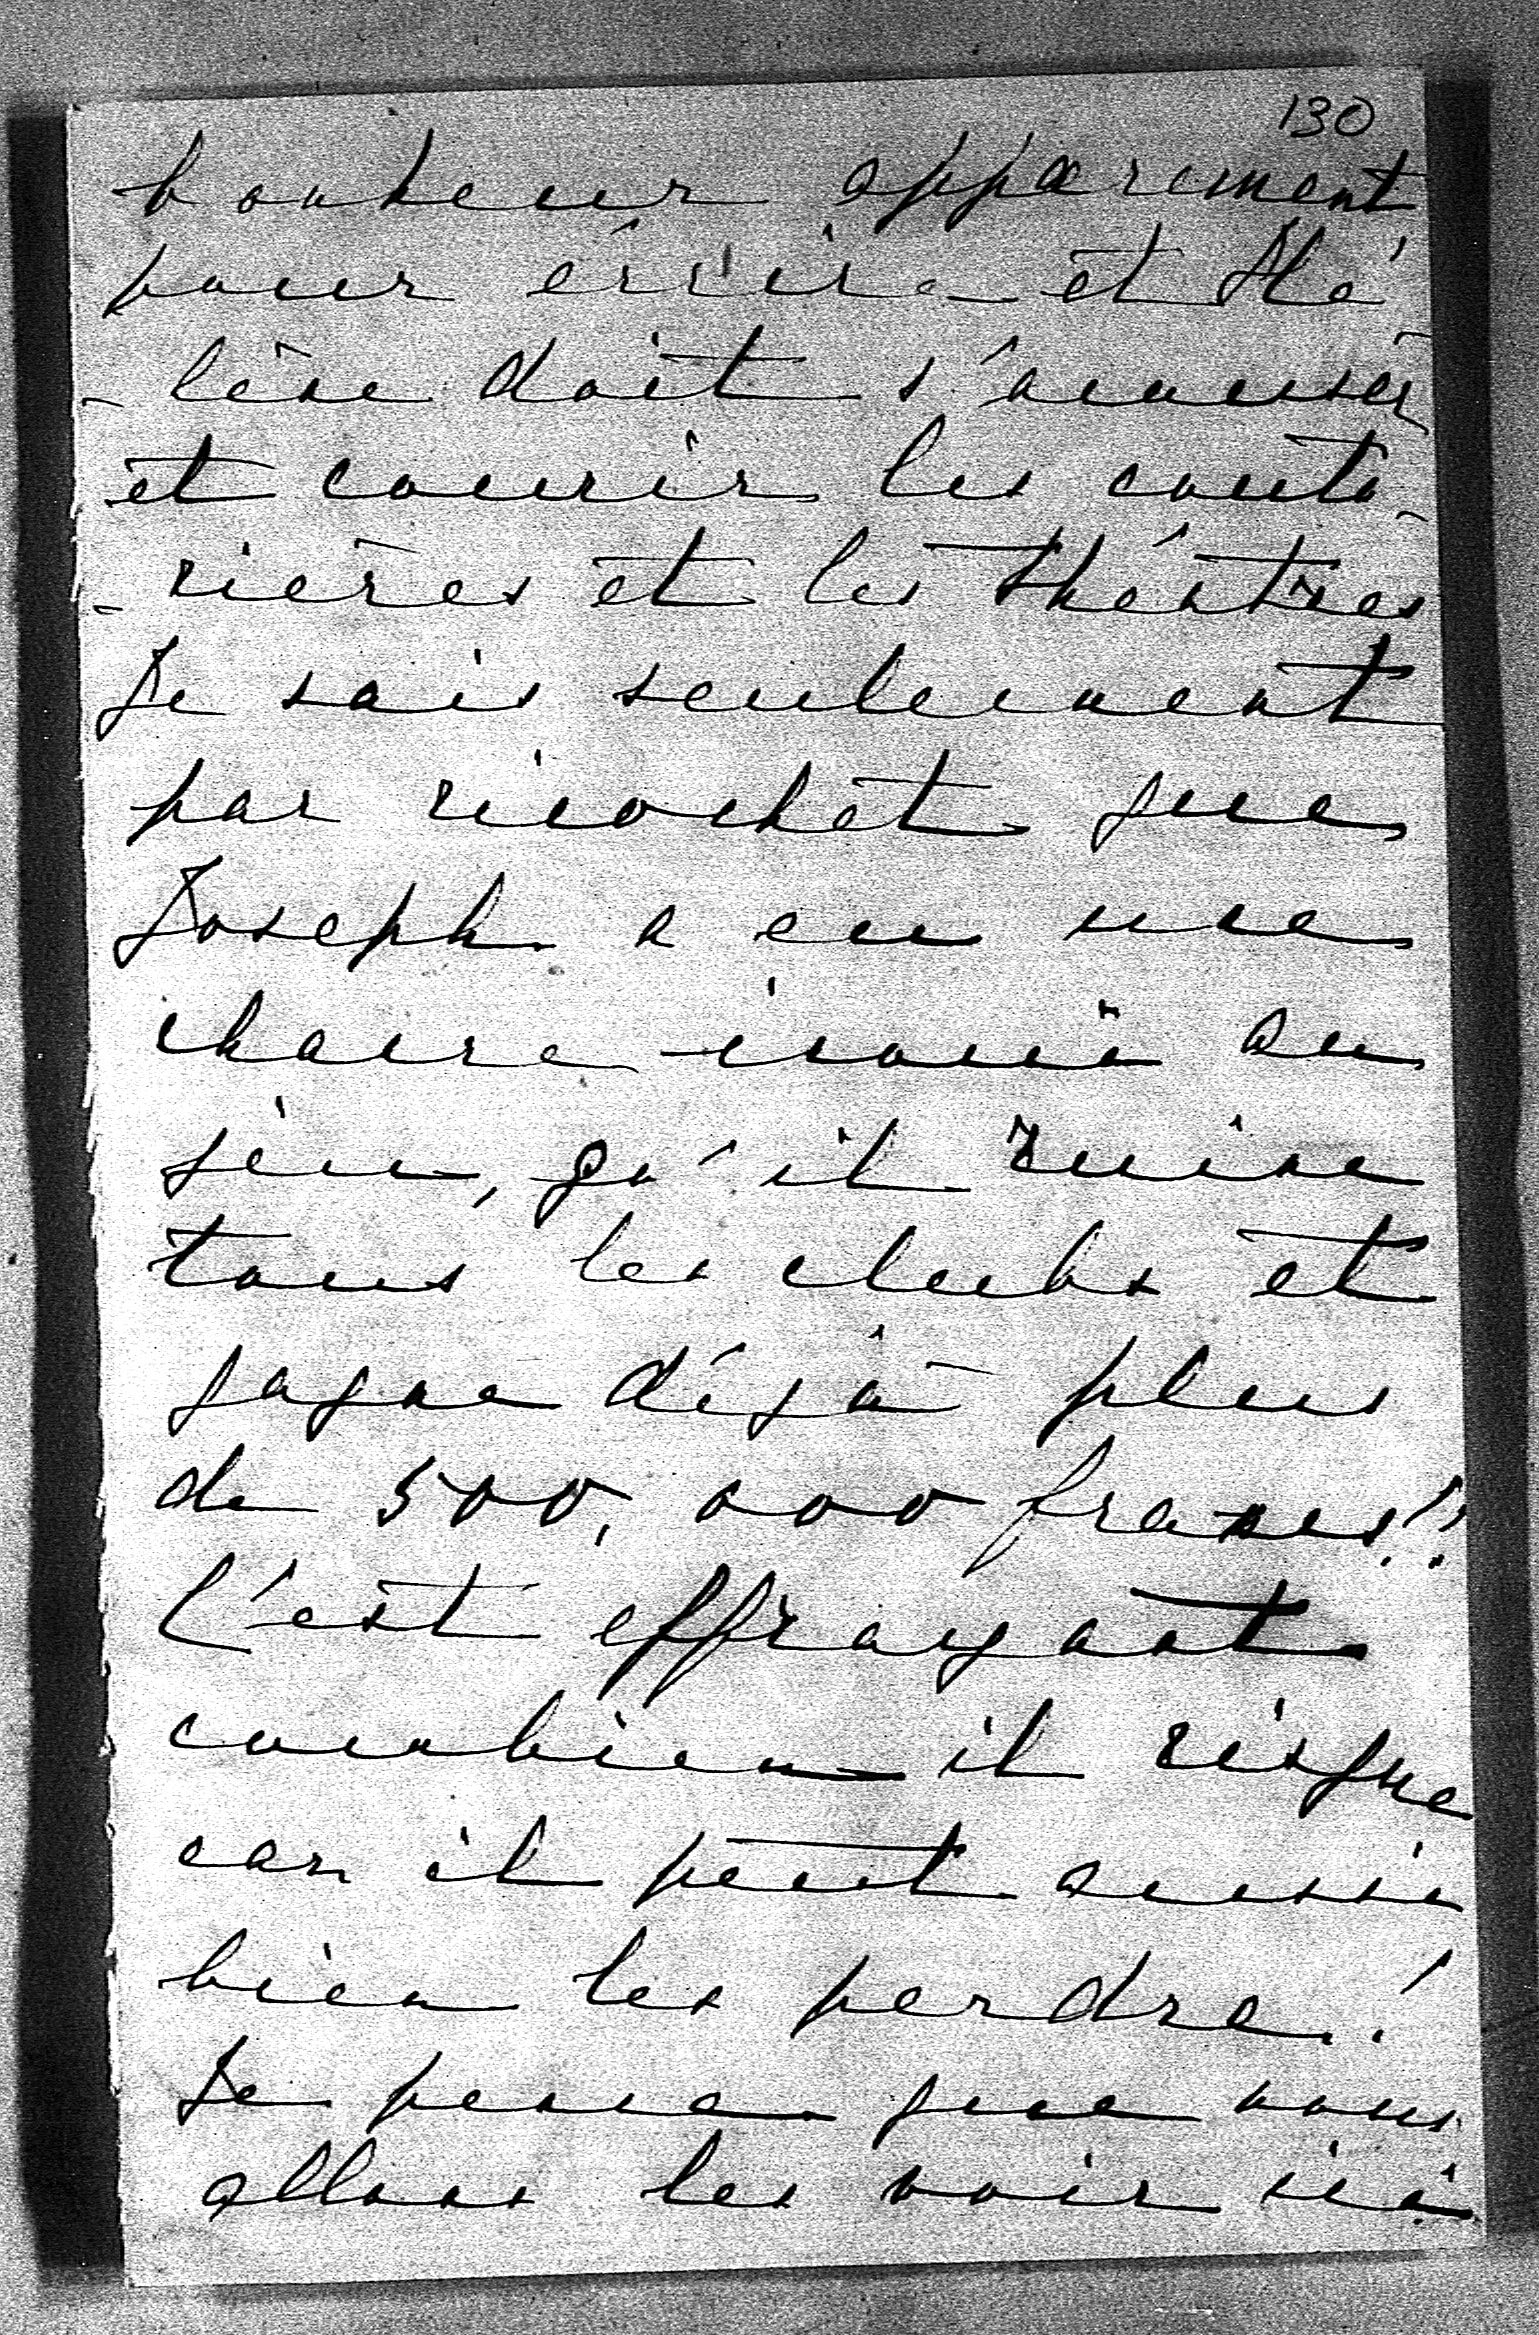 130
bonheur apparement
pour écrire et Hé
-lène doit s'amuser
et courir les coutu-
-rières et les théâtres
Je sais seulement
par ricochet que
Joseph a eu une
chance inouïe au
jeu, qu'il ruine
tous les clubs et
gagne déjà plus
de 500,000 francs!!
C'est effrayant
combien il risque
car il peut aussi
bien les perdre!
Je pense que nous
allons les voir ici